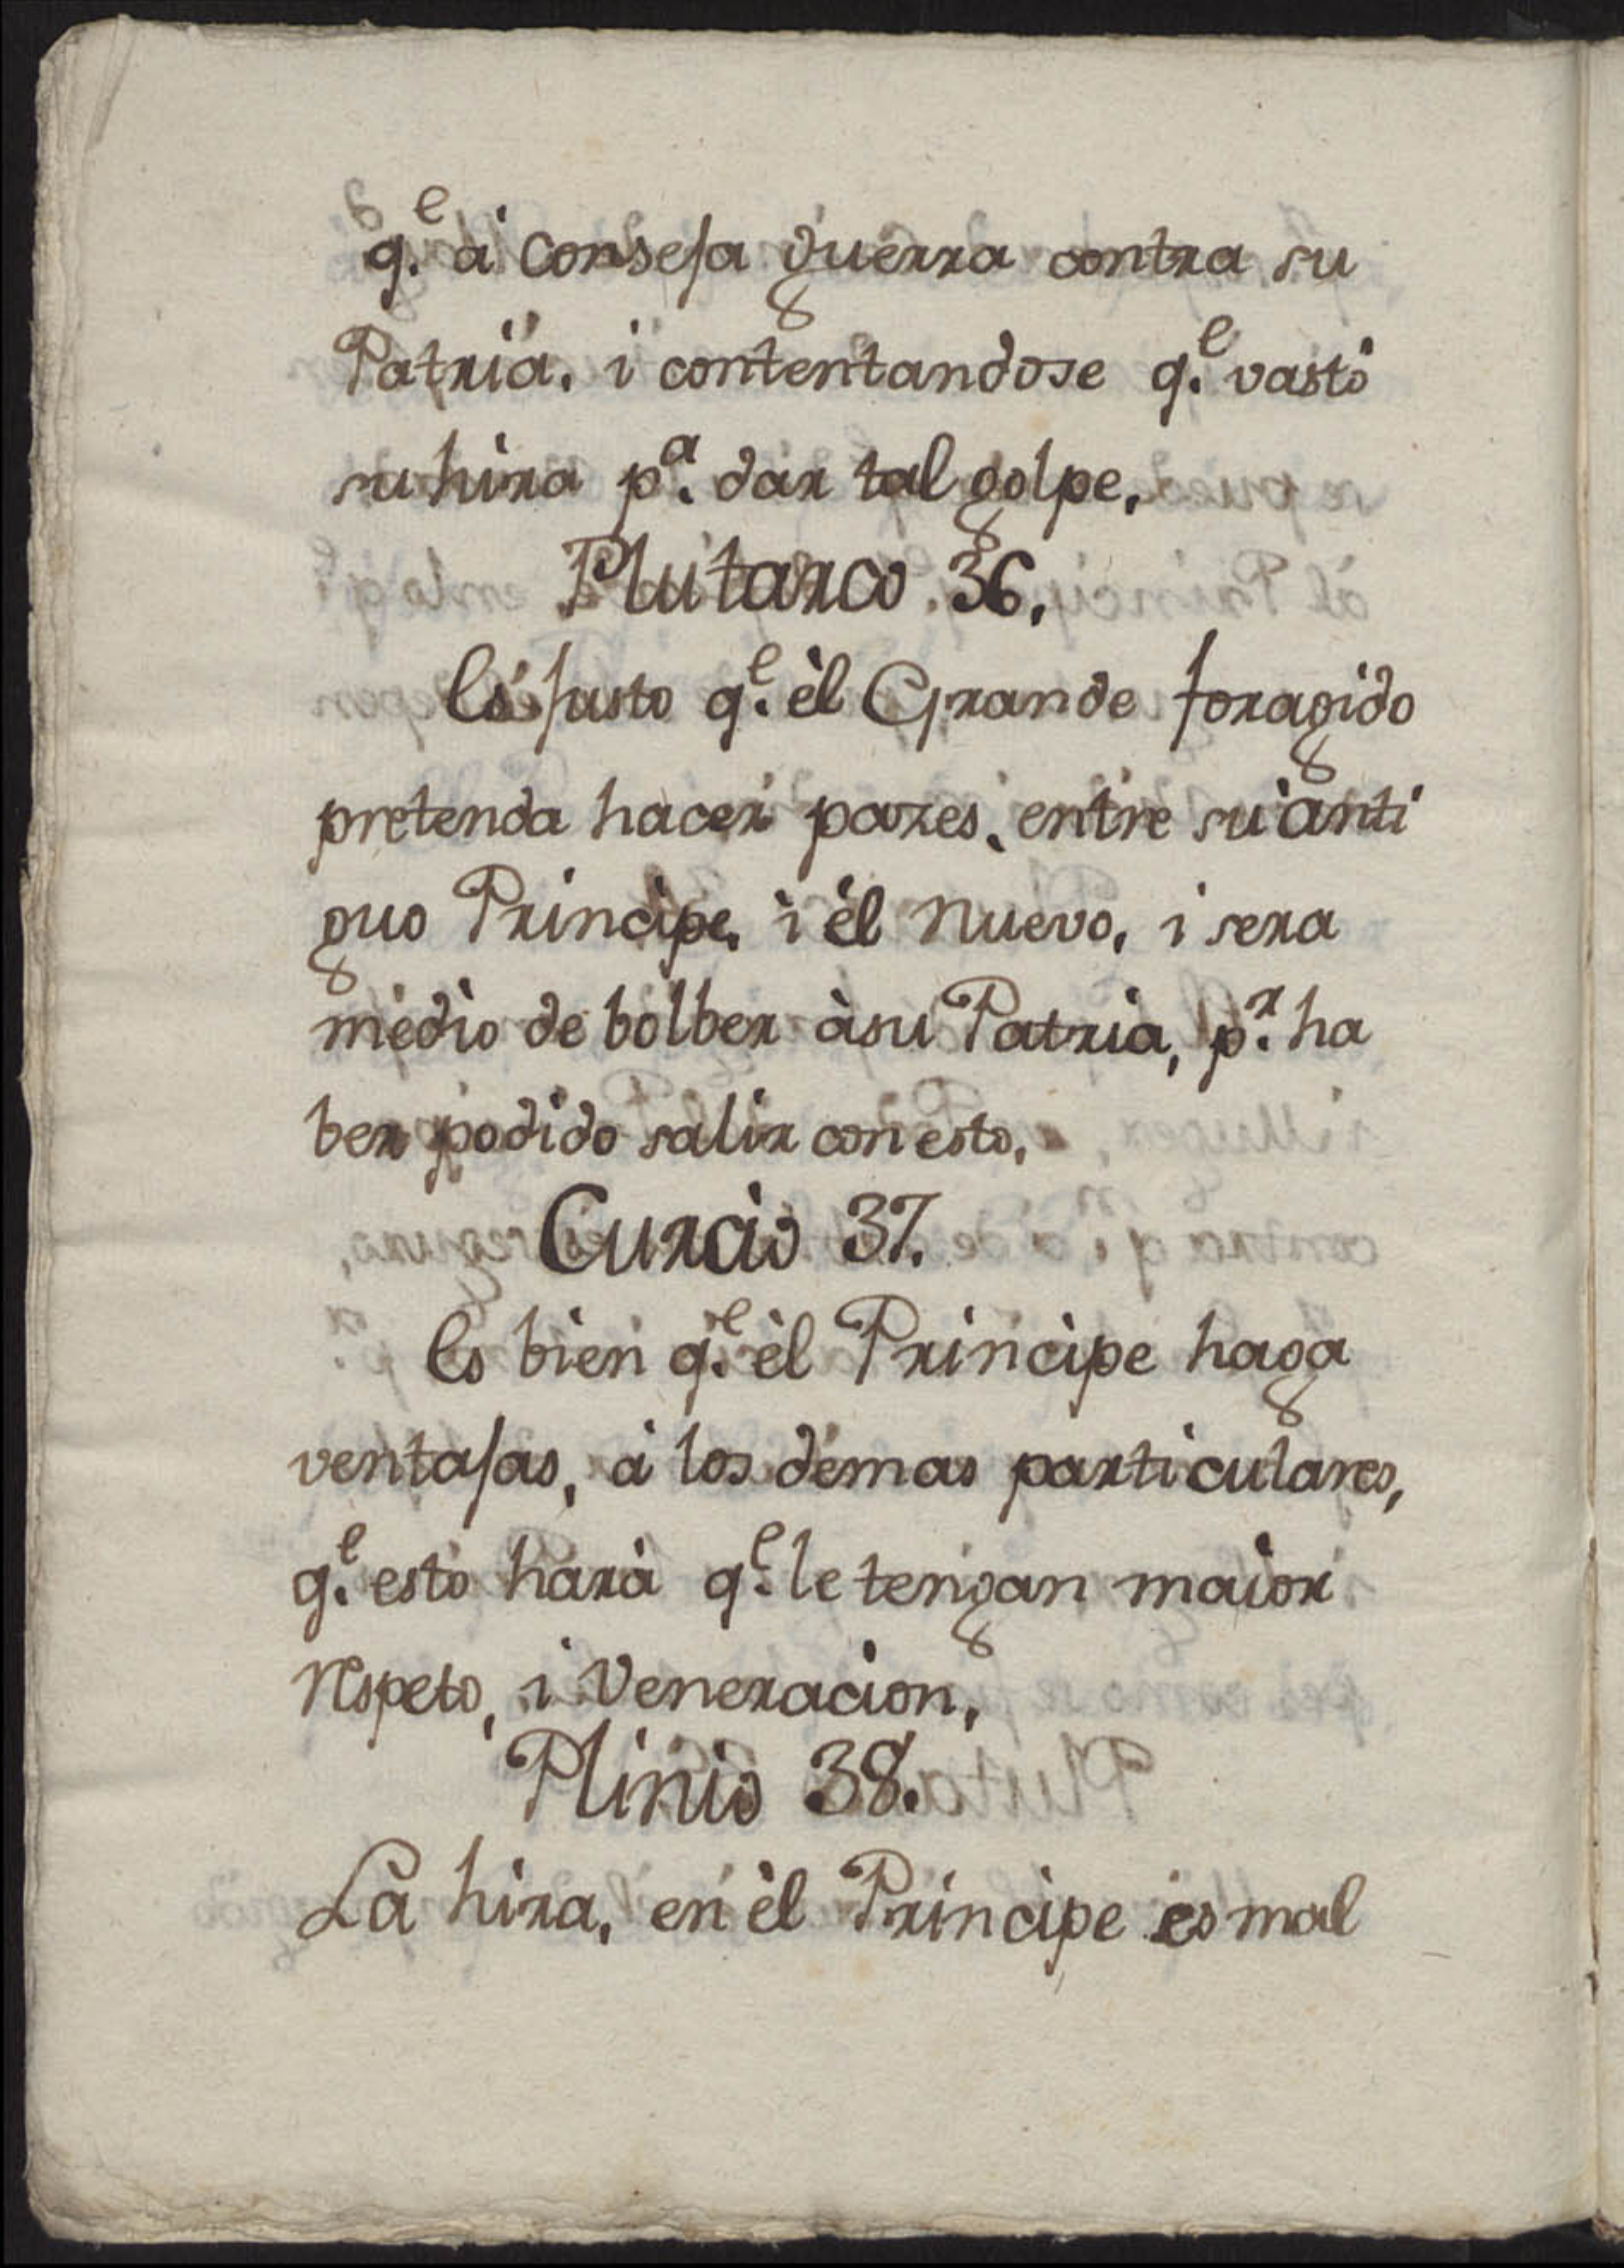 q.e à Conseja guerra contra su
Patria. i contentandose q.e vastò
su hira p.a dar tal golpe.
Plutarco 36.
Es justo q.e èl Grande foragido
pretenda hacer pazes, entre su anti
guo Principe, i èl nuevo, i sera
medio de bolber àsu Patria, p.r ha
ber podido salir con esto,
Curcio 37.
Es bien q.e èl Principe haga
ventajas, à los demas particulares,
q.e esto harà q.e le tengan maior
respeto, i Veneracion,
Plinio 38.
La hira, en èl Principe es mal